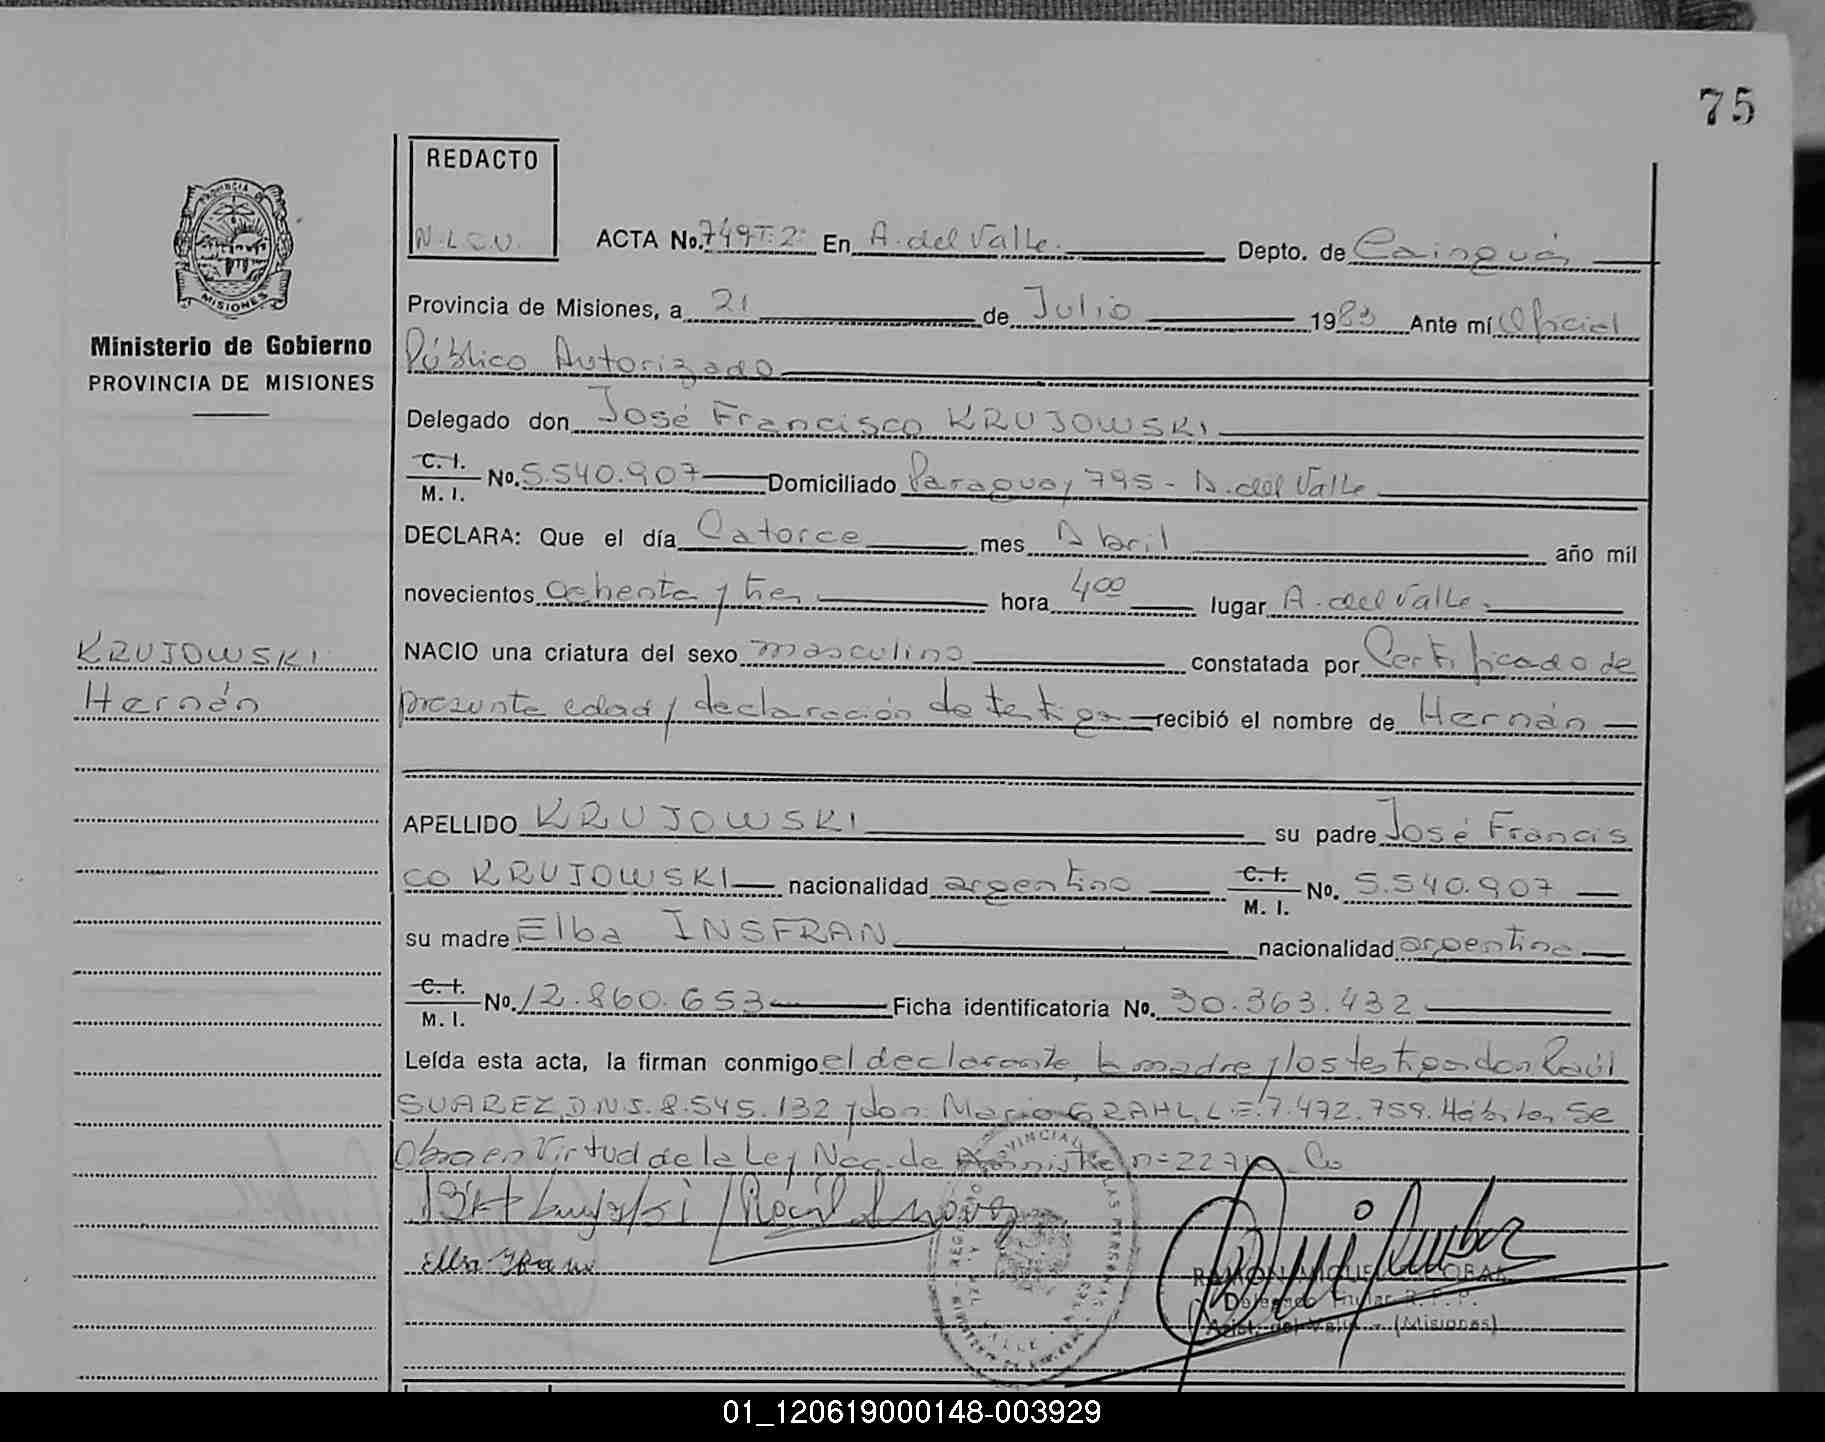 75
REDACTO
N.L.C.U.
ACTA No. 749 T. 2º En A. del Valle. Depto. de Cainguás
PROVINCIA DE
MISIONES
Provincia de Misiones, a 21 de Julio 1983 Ante mí Oficial
Ministerio de Gobierno
Público Autorizado
PROVINCIA DE MISIONES
Delegado don José Francisco KRUJOWSKI
C. I. M. I. No. 5.540.907 Domiciliado Paraguay 795 - A. del Valle
DECLARA: Que el día Catorce mes Abril año mil
novecientos ochenta y tres hora 4 00 lugar A. del Valle.
KRUJOWSKI
NACIO una criatura del sexo masculino constatada por Certificado de
Hernán
presunta edad y declaración de testigos recibió el nombre de Hernán
APELLIDO KRUJOWSKI su padre José Francis
co KRUJOWSKI nacionalidad argentino C. I. M. I. No. 5.540.907
su madre Elba INSFRAN nacionalidad argentina
C. I. M. I. No. 12.860.653 Ficha identificatoria No. 30.363.432
Leída esta acta, la firman conmigo el declarante, la madre y los testigos don Raúl
SUAREZ, D.N.I. 8.545.132 y don Mario GRAHL, L.E. 7.472.759. Hábiles. Se
Obra en Virtud de la Ley Nac. de Amnistía nº
RAMON MIGUEL
Delegado Titular R. P. P.
Arist. del Valle - (Misiones)
01_120619000148-003929